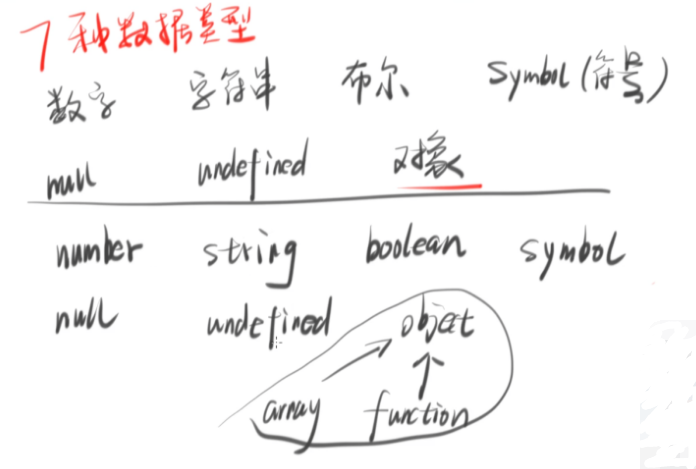 7种数据类型
数字 字符串 布尔 symbol(符号)
null undefined 对象
number string boolean symbol
null undefined object
array function